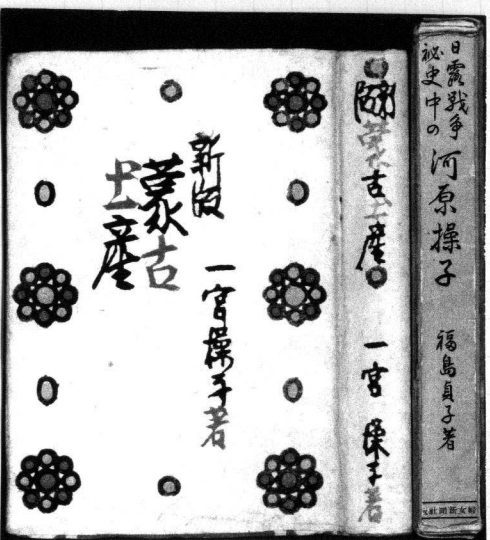 新版
蒙古
土産
一宮操子著
新版
蒙古土産
一宮操子著
日露戦争
秘史中の
河原操子
福島貞子著
婦女新聞社